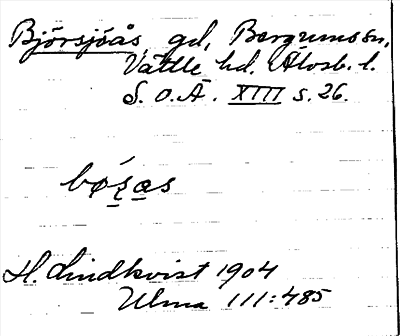 Björsjöås, gd, Bergums sn,
Vättle hd. Älvsb. l.
S. O. Ä. XIII s. 26.
H. Lindkvist 1904
Ulma 111:485